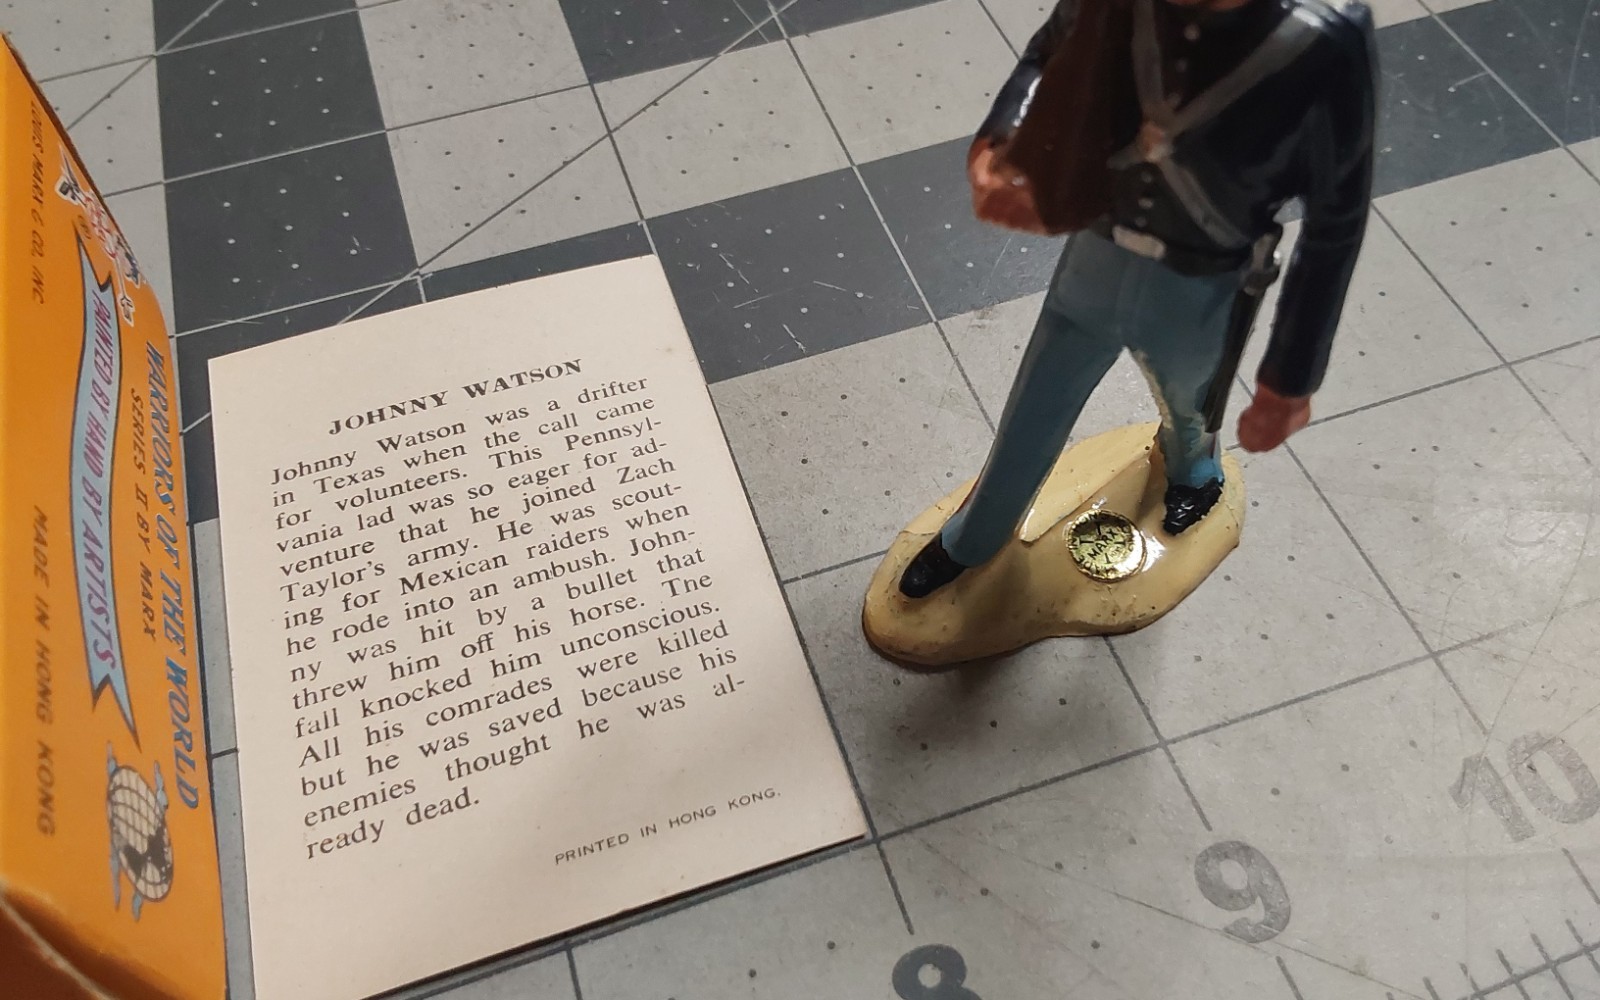 LOUIS MARX & CO. INC.
MADE IN HONG KONG
PAINTED BY HAND BY ARTISTS
WARRIORS OF THE WORLD
SERIES II BY MARX
JOHNNY WATSON
Johnny Watson was a drifter
in Texas when the call came
for volunteers. This Pennsyl-
vania lad was so eager for ad-
venture that he joined Zach
Taylor's army. He was scout-
ing for Mexican raiders when
he rode into an ambush. John-
ny was hit by a bullet that
threw him off his horse. The
fall knocked him unconscious.
All his comrades were killed
but he was saved because his
enemies thought he was al-
ready dead.
PRINTED IN HONG KONG.
MARX
8
9
10